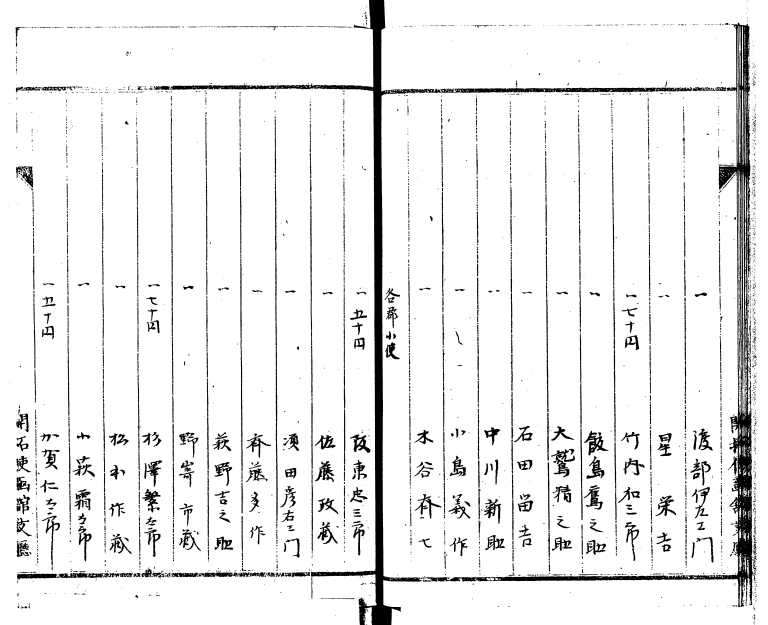 一 渡部伊左エ門
一 星栄吉
一七十円 竹内和三郎
一 飯島鷹之助
一 大鷲精之助
一 石田留吉
一 中川新助
一 小島義作
一 木谷斉七
各郡小使
一五十円 阪東忠三郎
一 佐藤政蔵
一 須田彦右エ門
一 斉藤多作
一 萩野吉之助
一 野寄市蔵
一七十円 杉澤繁太郎
一 松本作蔵
一 小萩霜太郎
一五十円 加賀仁太郎